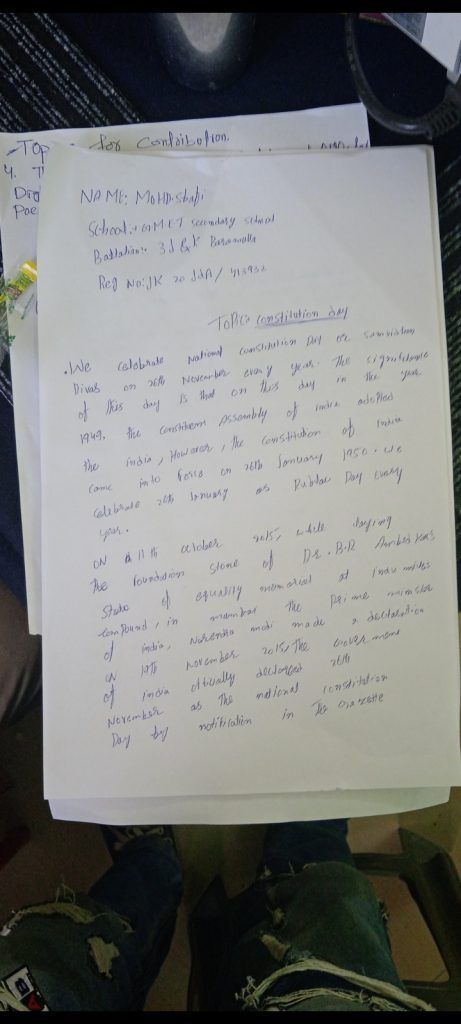 Top for Contribution.
4. T
Dro
Poe
NAME: MOHD. Shafi
School:- GMET Secondary School
Battalion:- 3 J&K Baramulla
Reg No: JK 20 JDA/ 413932
ToPIC: Constitution day
. We celebrate National Constitution Day or Samvidhan
Divas on 26th November every year. The significance
of this day is that on this day in the year
1949. the Constituent Assembly of india adopted
the india, However, the Constitution of India
came into force on 26th January 1950. we
celebrate 26th January as Public Day Every
year.
ON 11th october 2015, while laying
the foundation stone of DR. B.R Ambedkars
State of equality memorial at Indu mites
compound, in mumbai the Prime minister
of india, Narendra modi made a declaration
ON 19th November 2015, The Government
of India officially declared 26th
November as The national constitution
Day by notification in The Gazette